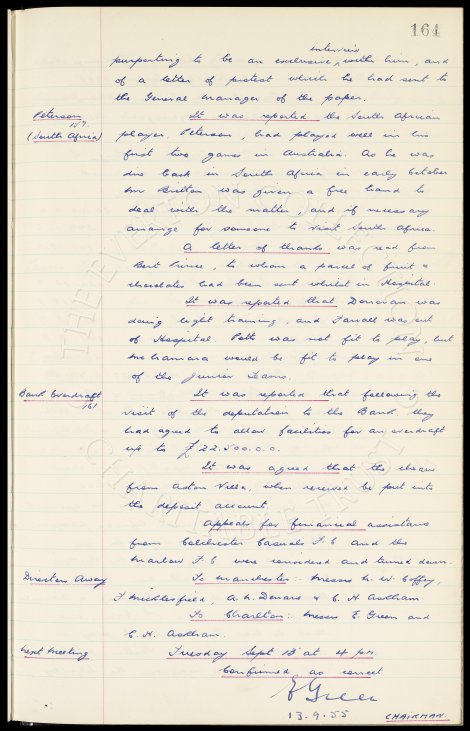 164
interview
purporting to be an exclusive, with him, and
of a letter of protest which he had sent to
the General manager of the paper.
Peterson It was reported the South African
157
(South Africa) player, Peterson, had played well in his
first two games in Australia. As he was
due back in South Africa in early October
Mr Britton was given a free hand to
deal with the matter, and if necessary
arrange for someone to visit South Africa.
A letter of thanks was read from
Bert Prince, to whom a parcel of fruit &
chocolates had been sent whilst in Hospital.
It was reported that Donovan was
doing light training, and Farrall was out
of Hospital. Potts was not fit to play, but
McNamara would be fit to play in one
of the Junior Teams.
Bank Overdraft It was reported that following the
161
visit of the deputation to the Bank they
had agreed to allow facilities for an overdraft
up to £22.500.0.0.
It was agreed that the cheque
from Aston Villa, when received be put into
the deposit account.
Appeals for financial assistance
from Colchester Casuals F.C and the
Marlow F.C were considered and turned down.
Directors Away To Manchester: Messrs N. W. Coffey,
F Micklesfield, A. L. Denaro & C. H. Askham.
To Charlton: Messrs E. Green and
C. H. Askham.
Next Meeting Tuesday Sept 13 at 4 p.m.
Confirmed as correct
E Green
13.9.55 CHAIRMAN.
THE EVERTON COLLECTION
CHARITABLE TRUST